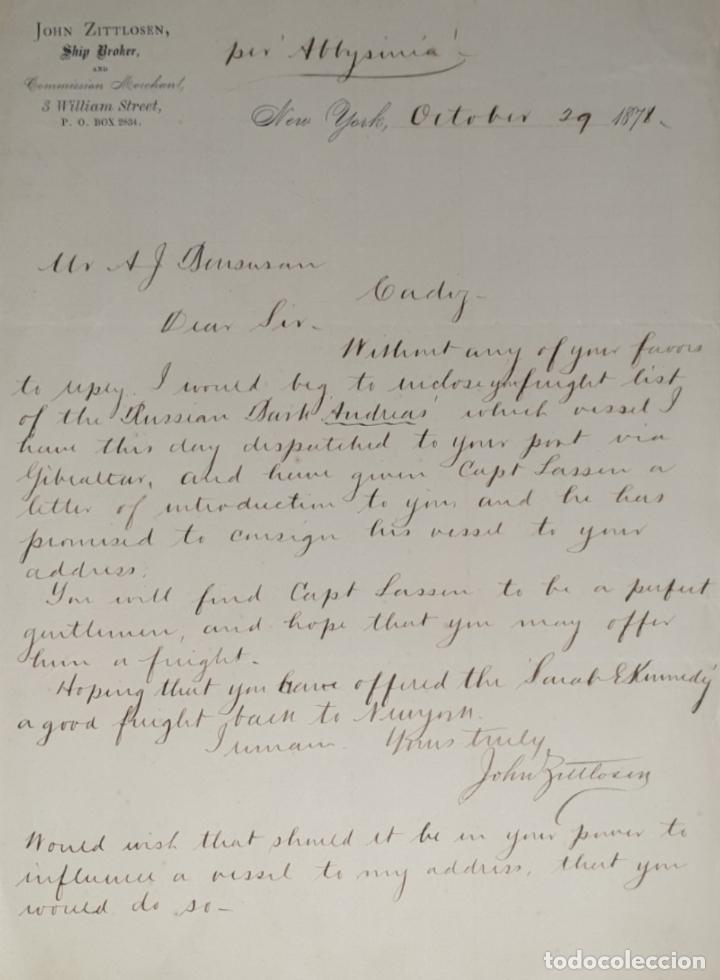 JOHN ZITTLOSEN,
Ship Broker,
AND
Commission Merchant,
3 William Street,
P. O. BOX 2834.
per 'Abbysinia'
New York, October 29 1878.
Mr A J Bensusan
Cadiz
Dear Sir.
Without any of your favors
to reply. I would beg to inclose you freight list
of the Russian Bark 'Andreas' which vessel I
have this day dispatched to your port via
Gibraltar, and have given Capt Lassen a
letter of introduction to you, and he has
promised to consign his vessel to your
address.
You will find Capt Lassen to be a perfect
gentlemen, and hope that you may offer
him a freight.
Hoping that you have offered the 'Sarah E Kennedy'
a good freight back to Newyork.
I remain. Yours truly,
John Zittlosen
Would wish that should it be in your power to
influence a vessel to my address, that you
would do so-
todocoleccion